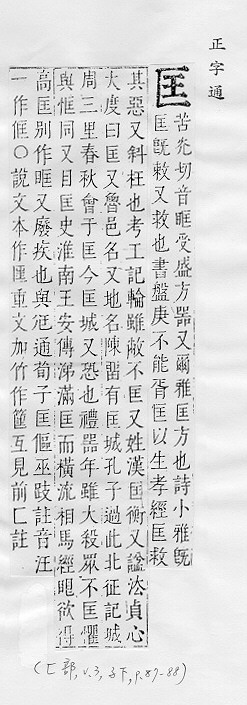 正字通
匡
苦光切音眶受盛方器又爾雅匡方也詩小雅旣
匡旣敕又救也書盤庚不能胥匡以生孝經匡救
其惡又斜枉也考工記輪雖敝不匡又姓漢匡衡又諡法貞心
大度曰匡又魯邑名又地名陳留有匡城孔子過此北征記城
周三里春秋會于匡今匡城又恐也禮器年雖大殺眾不匡懼
與恇同又目匡史淮南王安傳涕滿匡而橫流相馬經眶欲得
高匡別作眶又廢疾也與尪通荀子匡傴巫跂註音汪
一作俇〇說文本作匩重文加竹作筐互見前匚註
(匚部, v.3, 子下, p.87-88)